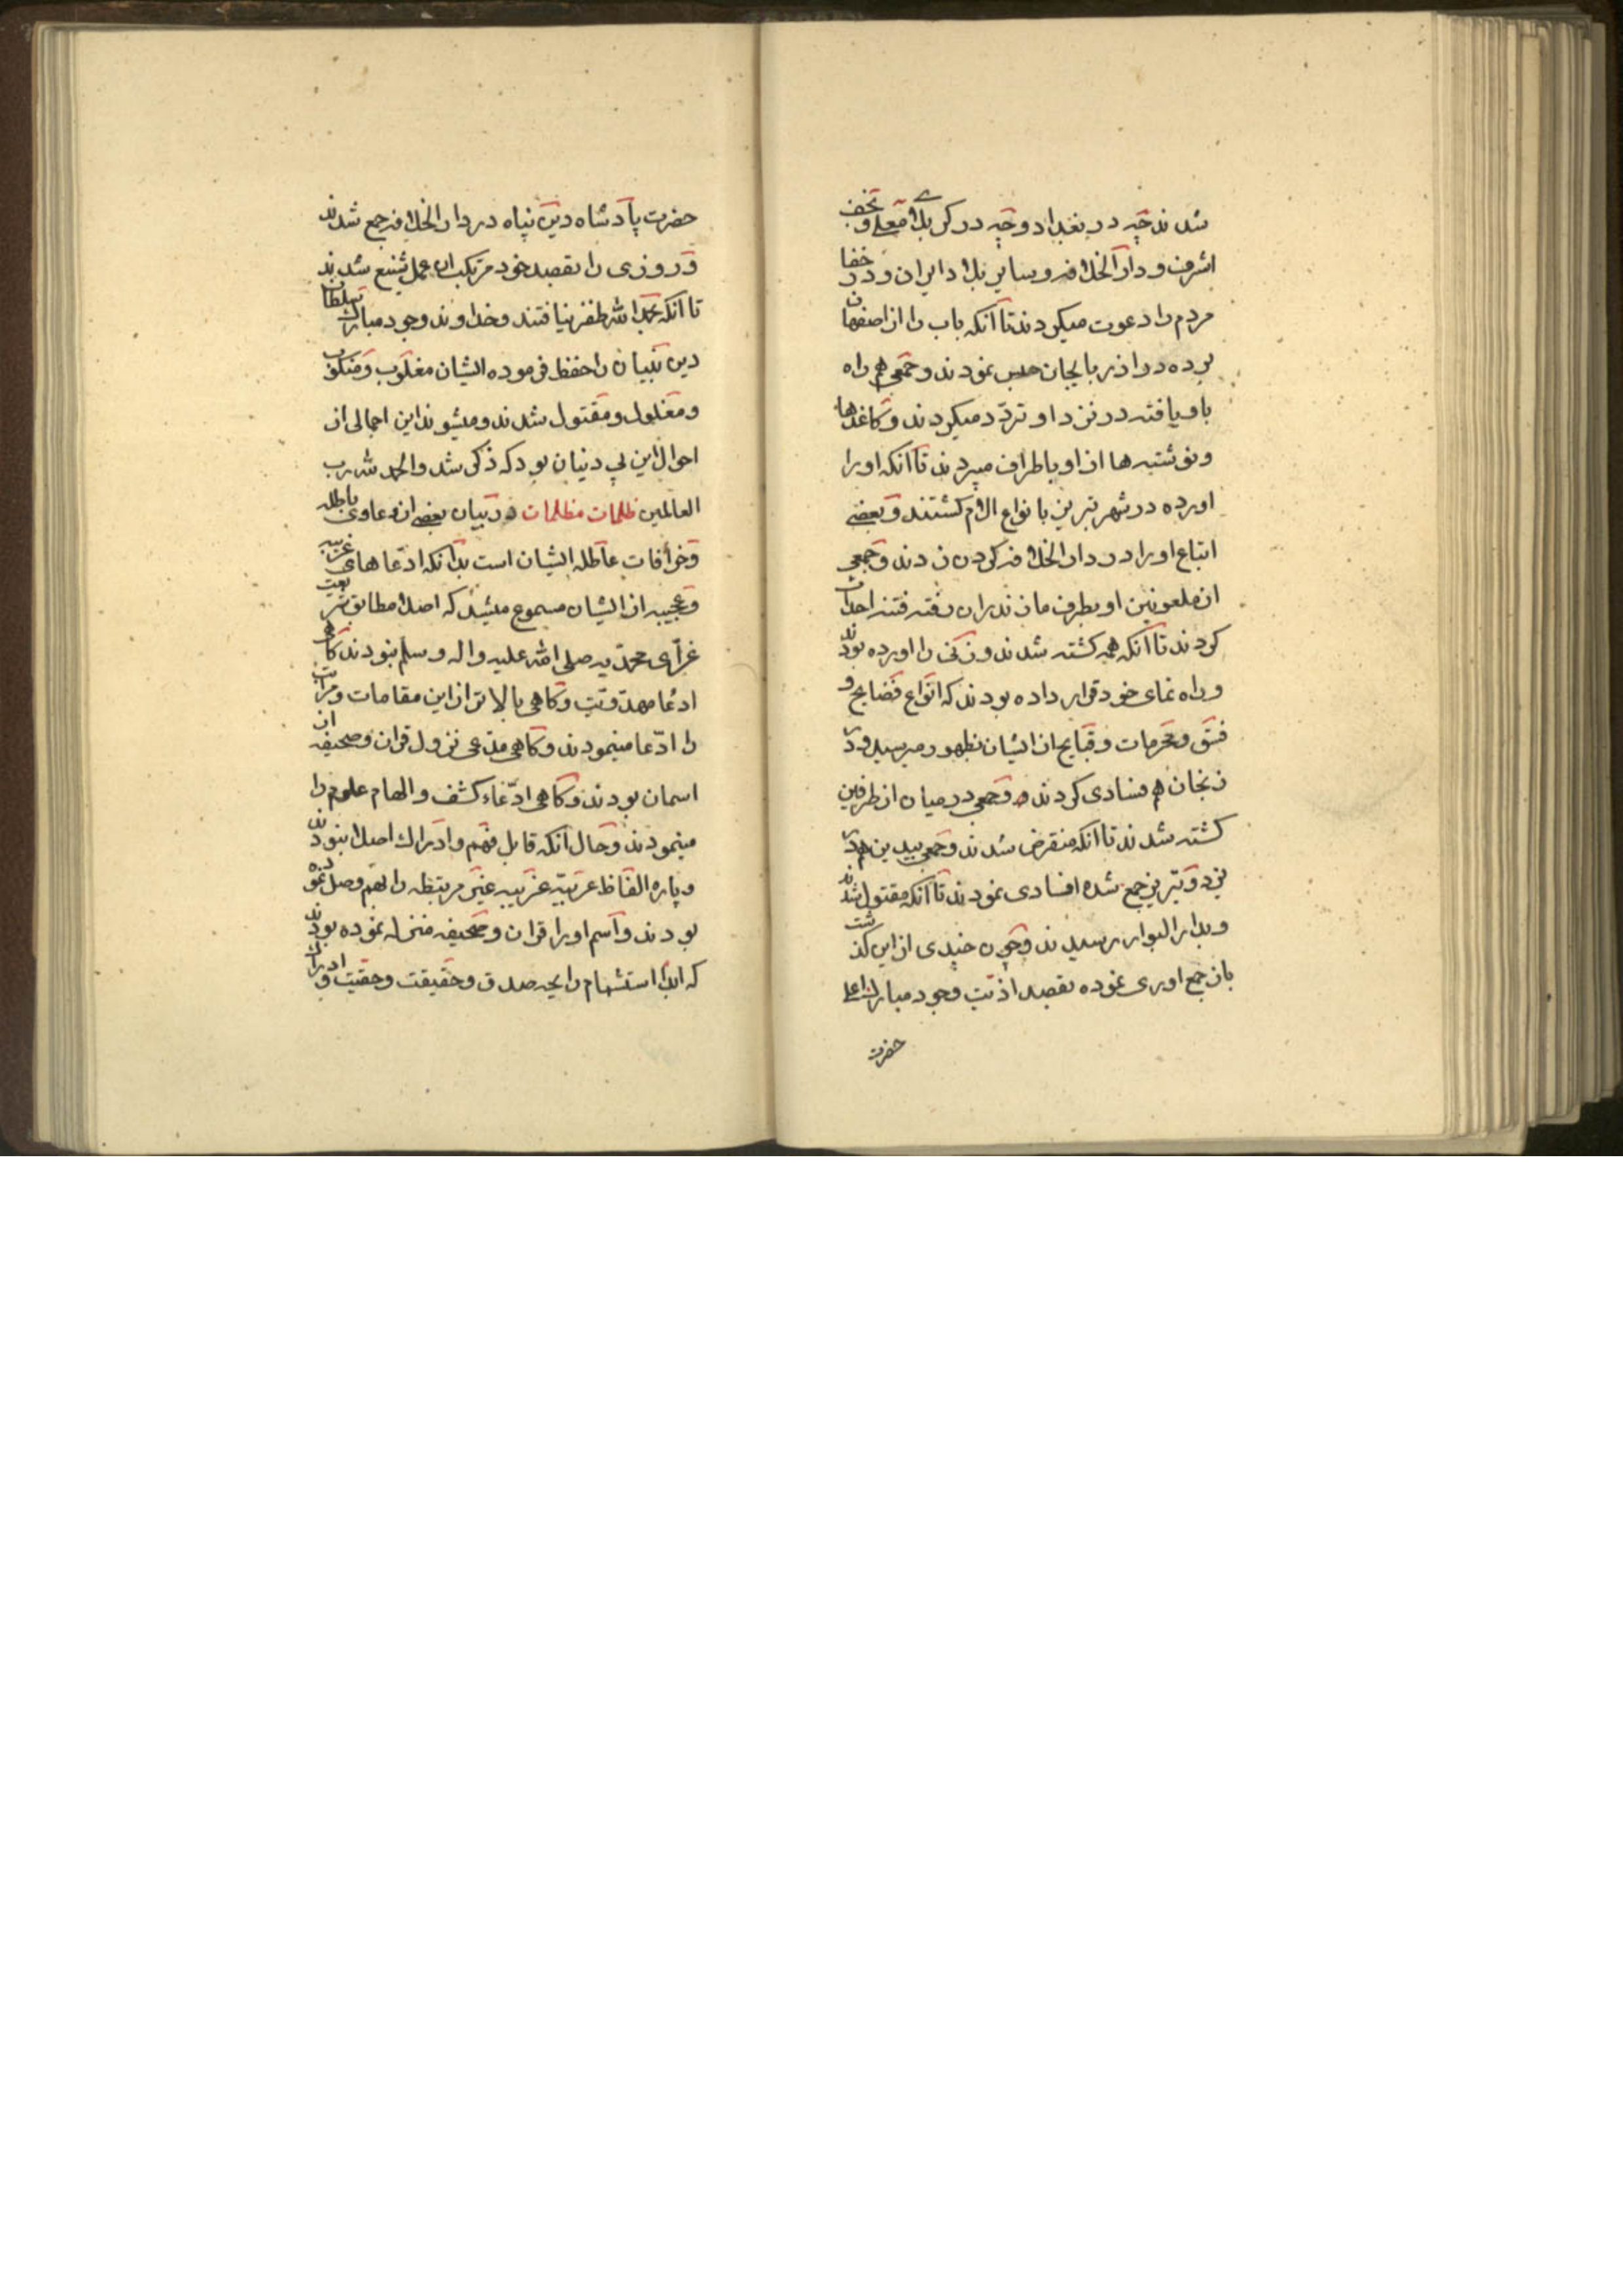 شدند چه در بغداد و چه در کربلای معلی و نجف
اشرف و دار الخلافه و سایر بلاد ایران و در خفا
مردم را دعوت میکردند تا آنکه باب را از اصفهان
برده در اذربایجان حبس نمودند و جمعی هم راه
باو یافته در نزد او تردّد میکردند و کاغذها
و نوشته ها از او باطراف میبردند تا آنکه او را
اورده در شهر تبریز بانواع الام کشتند و بعضی
اتباع او را در دار الخلافه کردن زدند و جمعی
از ملعونین او بطرف مازندران رفته فتنه احداث
کردند تا آنکه همه کشته شدند و زنی را اورده بودند
و راه نمای خود قرار داده بودند که انواع فضایح و
فسق و محرمات و قبایح از ایشان بظهور میرسید و در
زنجان هم فسادی کردند و جمعی در میان از طرفین
کشته شدند تا آنکه منقرض شدند و جمعی بیدین هم در
یزد و تبریز جمع شده افسادی نمودند تا آنکه مقتول شدند
و بدار البوار رسیدند و چون چندی از این کذشت
باز جمع اوری نموده بقصد اذیّت وجود مبارک اعلی
حضرت
حضرت پادشاه دین پناه در دار الخلافه جمع شدند
و روزی را بقصد خود مرتکب ان عمل شنیع شدند
تا آنکه بحمد الله ظفر نیافتند و خداوند وجود مبارک سلطان
دین بنیان را حفظ فرموده ایشان مغلوب و منکوب
و مغلول و مقتول شدند و میشوند این اجمالی از
احوال این بی دنیان بود که ذکر شد و الحمد لله رب
العالمین ظلمات مظلمات در بیان بعضی از دعاوی باطله
و خرافات عاطله ایشان است بدانکه ادّعاهای غریبه
و عجیبه از ایشان مسموع میشد که اصلا مطابق شریعت
غرّای محمدیه صلی الله علیه و اله و سلم نبودند کاهی
ادعا مهدویّت و کاهی بالاتر از این مقامات و مراتب
را ادّعا مینمودند و کاهی مدعی نزول قران و صحیفه از
اسمان بودند و کاهی ادّعاء کشف و الهام علوم را
مینمودند و حال آنکه قابل فهم و ادراک اصلا نبودند
و پاره الفاظ عربیّه غریبیه غیر مرتبطه را بهم وصل نموده
بودند و اسم او را قران و صحیفه منزله نموده بودند
که ابدا استشمام رایحه صدق و حقیقت و حقیت و ادراک